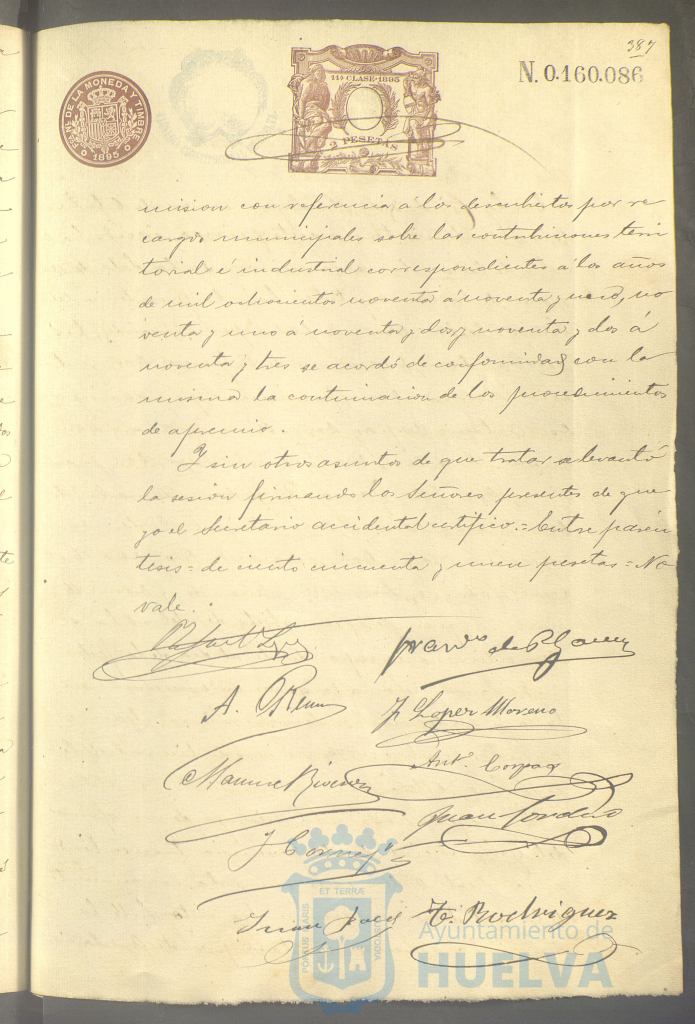 387
N. 0.160.086
FÁB. NAL. DE LA MONEDA Y TIMBRE
1895
11ª CLASE-1895
2 PESETAS
mision con referencia á los descubiertos por re
cargos municipales sobre las contribuciones terri
torial é industrial correspondientes á los años
de mil ochocientos noventa á noventa y uno, no
venta y uno á noventa y dos y noventa y dos á
noventa y tres se acordó de conformidad con la
misma la continuacion de los procedimientos
de apremio.
Y sin otros asuntos de que tratar se levantó
la sesion firmando los Señores presentes de que
yo el Secretario accidental certifico.= Entre parén
tesis = de ciento cincuenta y nueve pesetas = No
vale.
de P.
A.
J Lopez Moreno
Manuel
Antº.
Juan
J
Juan
Rodriguez
ET TERRÆ
PORTUS MARIS
CUSTODIA
Ayuntamiento de
HUELVA